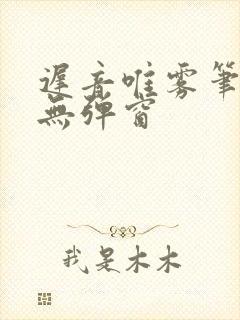 遲音唯雾筆
無彈窗
我是木木